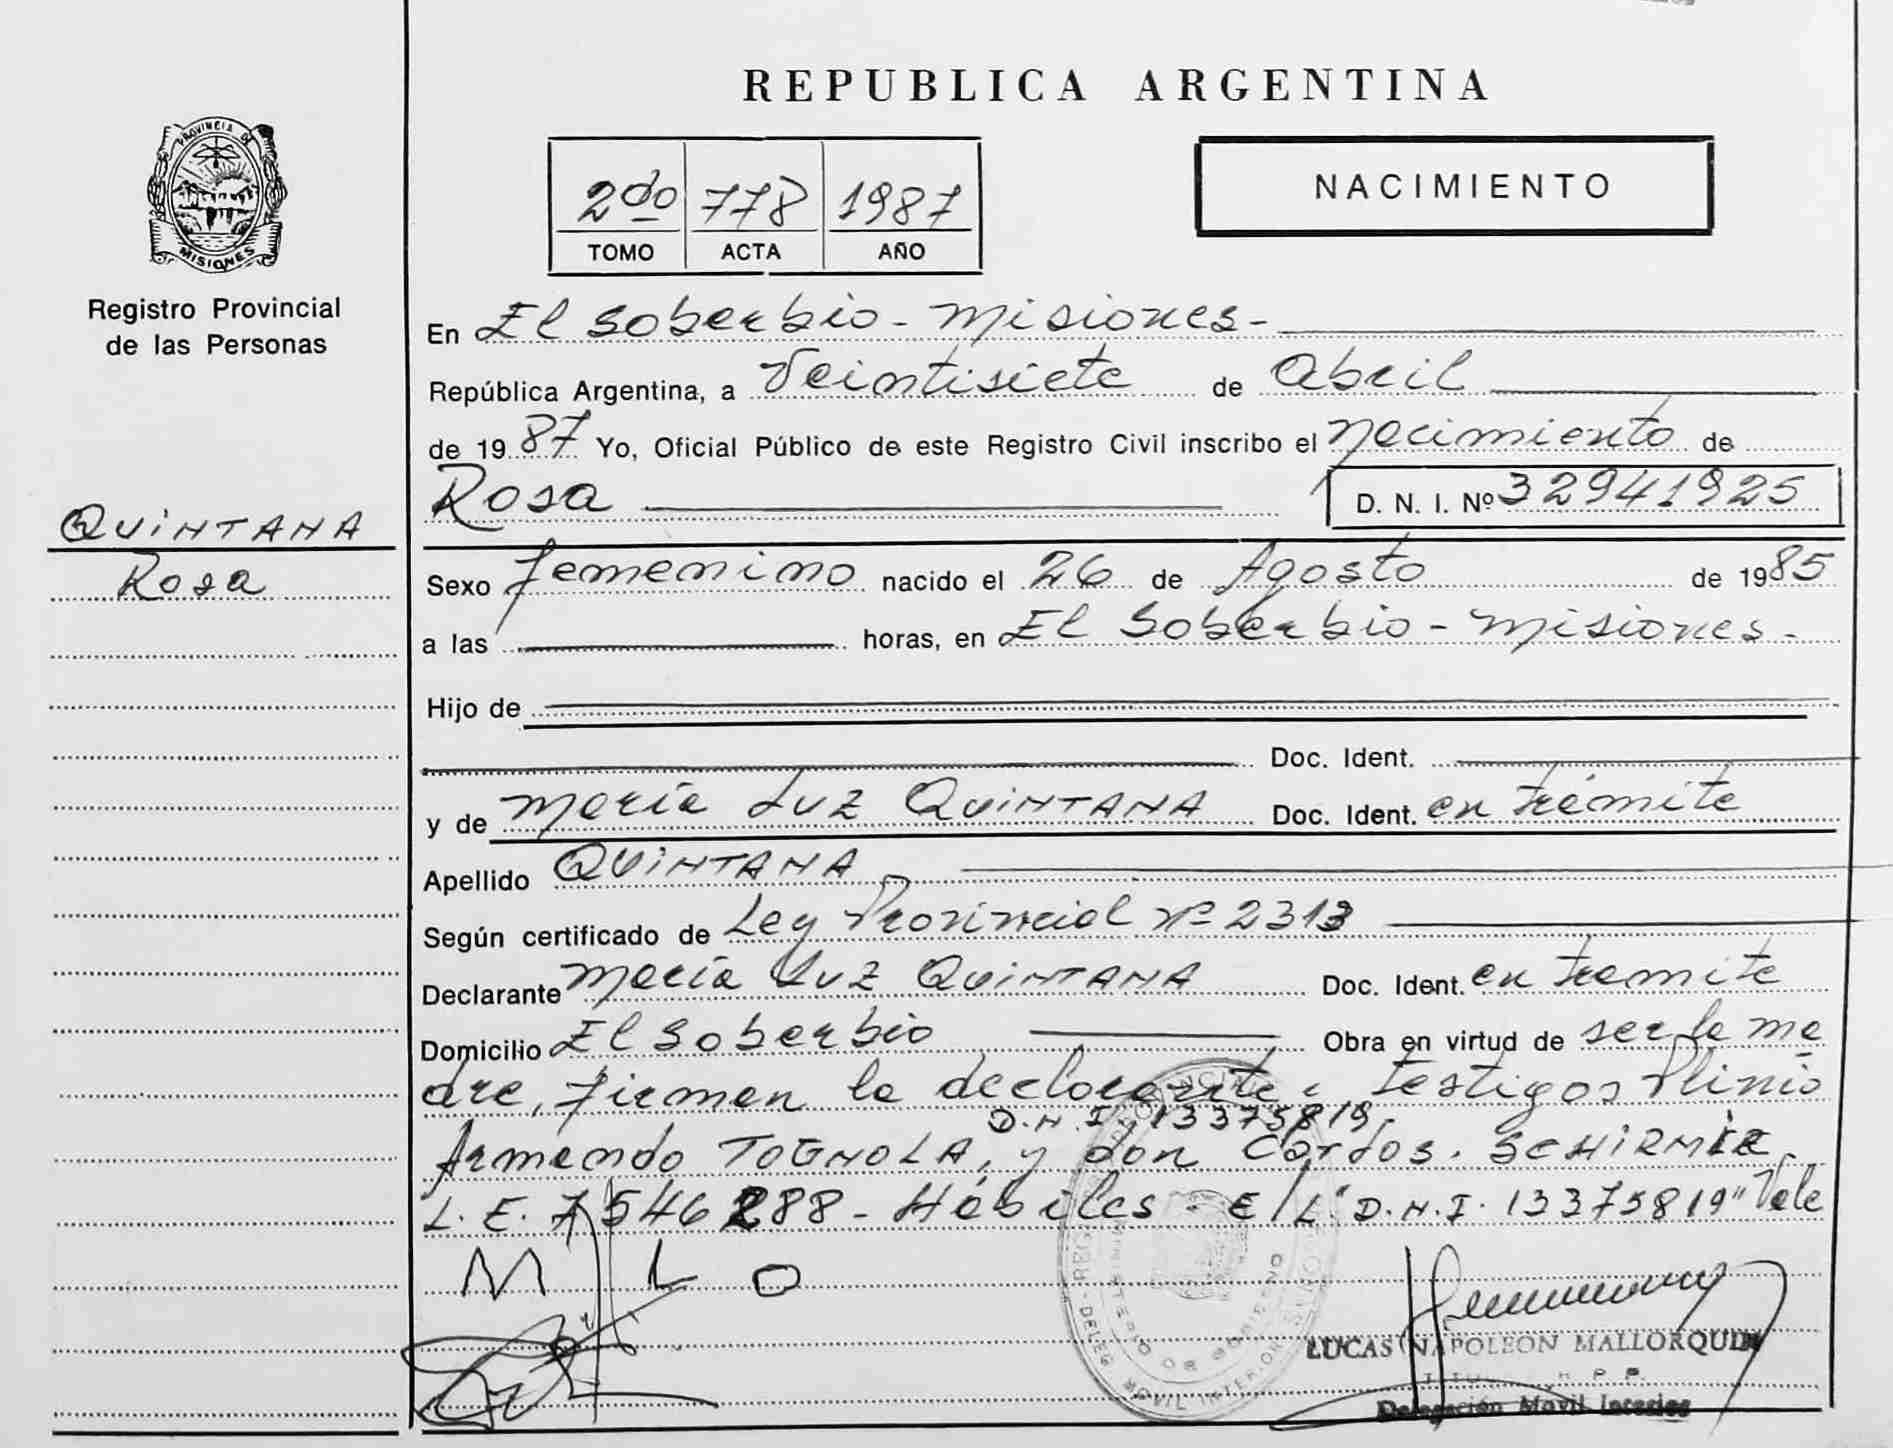 REPUBLICA ARGENTINA
PROVINCIA DE
MISIONES
Registro Provincial
de las Personas
2do 778 1987
TOMO ACTA AÑO
NACIMIENTO
En El Soberbio - Misiones -
República Argentina, a Veintisiete de Abril
de 1987 Yo, Oficial Público de este Registro Civil inscribo el Nacimiento de
Rosa D. N. I. Nº 32941925
QUINTANA
Rosa
Sexo femenino nacido el 26 de Agosto de 1985
a las horas, en El Soberbio - Misiones -
Hijo de
Doc. Ident.
y de María Luz QUINTANA Doc. Ident. en trámite
Apellido QUINTANA
Según certificado de Ley Provincial Nº 2313
Declarante María Luz QUINTANA Doc. Ident. en tramite
Domicilio El Soberbio Obra en virtud de ser la ma
dre, firman la declarante y testigos Plinio
D.N.I. 13375819.
Armando TOGNOLA, y don Carlos. SCHIRMER
L.E. 7546288 - Hábiles - E/L "D.N.I. 13375819" Vale
M L O
LUCAS NAPOLEON MALLORQUIN
Delegación Movil Interior